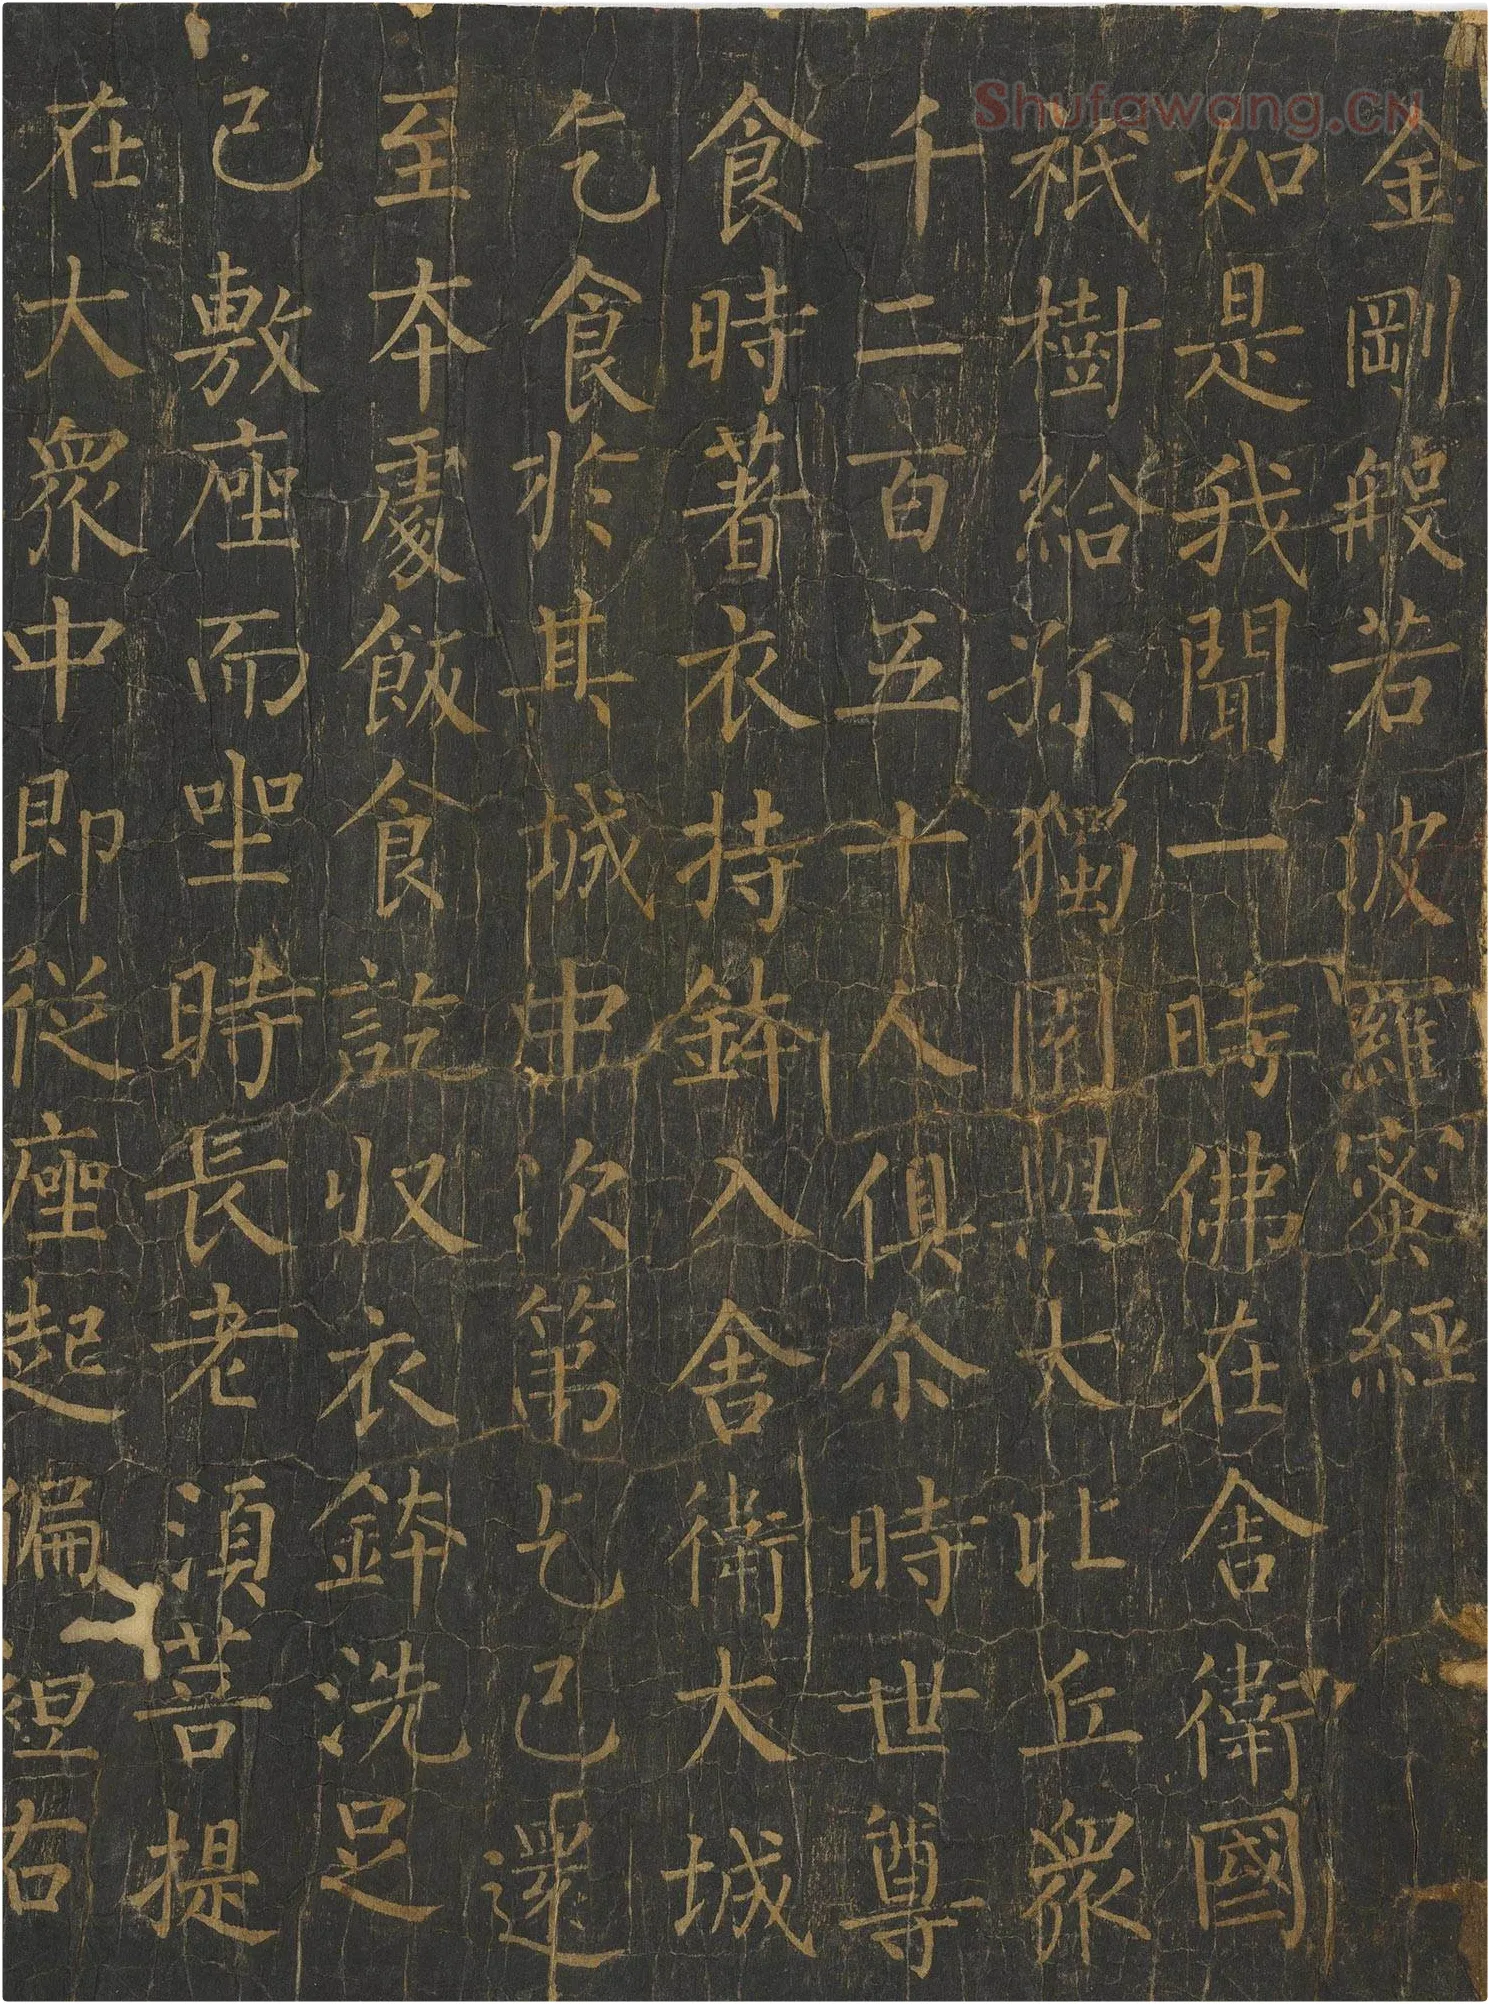 Shufawang.CN
金剛般若波羅蜜經
如是我聞一時佛在舍衛國
祇樹給孤獨園與大比丘衆
千二百五十人俱尒時世尊
食時著衣持鉢入舍衛大城
乞食於其城中次第乞已還
至本處飯食訖収衣鉢洗足
已敷座而坐時長老湏菩提
在大衆中即從座起偏袒右